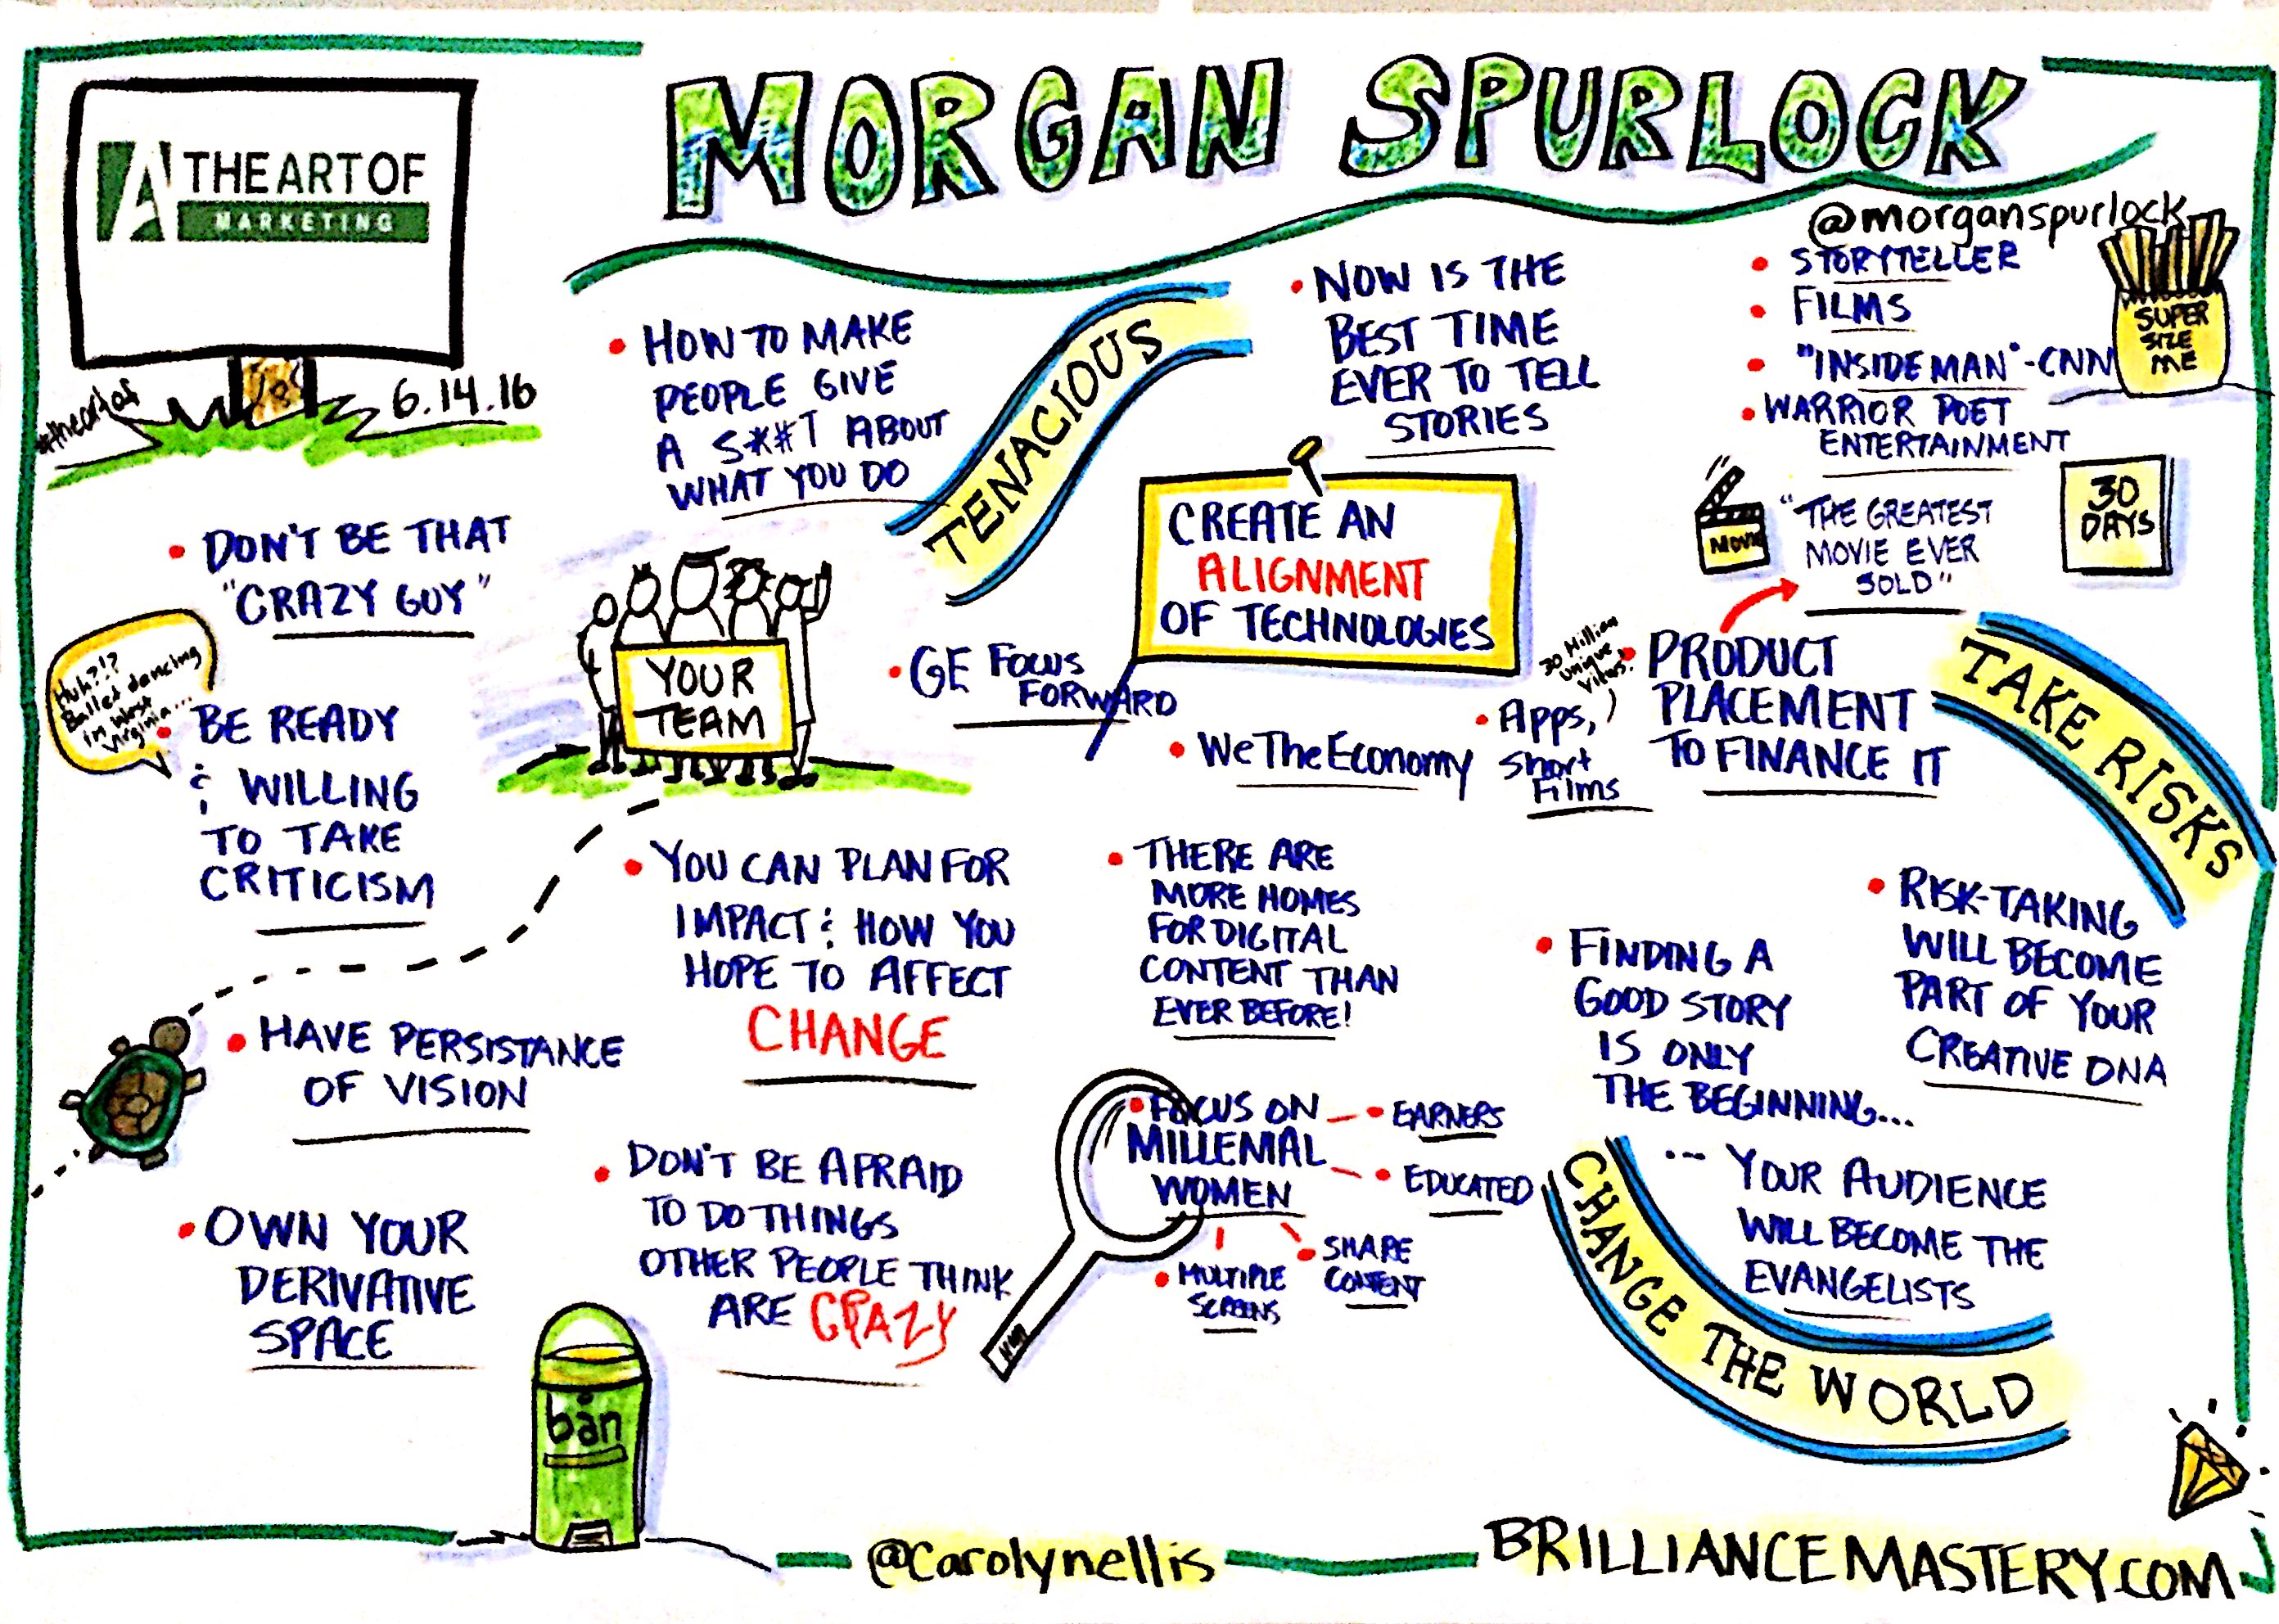 MORGAN SPURLOCK
A THE ART OF
MARKETING
#theartof
6.14.16
@morganspurlock
• STORYTELLER
• FILMS
• "INSIDE MAN" - CNN
• WARRIOR POET
ENTERTAINMENT
SUPER
SIZE
ME
MOVIE
"THE GREATEST
MOVIE EVER
SOLD"
30
DAYS
• HOW TO MAKE
PEOPLE GIVE
A S*##T ABOUT
WHAT YOU DO
TENACIOUS
• NOW IS THE
BEST TIME
EVER TO TELL
STORIES
CREATE AN
ALIGNMENT
OF TECHNOLOGIES
• DON'T BE THAT
"CRAZY GUY"
Huh?!?
Ballet dancing
in West
Virginia...
• BE READY
& WILLING
TO TAKE
CRITICISM
YOUR
TEAM
• GE FOCUS
FORWARD
• WeTheEconomy
• Apps,
short
Films
30 Million
Unique
• PRODUCT
PLACEMENT
TO FINANCE IT
TAKE RISKS
• YOU CAN PLAN FOR
IMPACT & HOW YOU
HOPE TO AFFECT
CHANGE
• THERE ARE
MORE HOMES
FOR DIGITAL
CONTENT THAN
EVER BEFORE!
• FINDING A
GOOD STORY
IS ONLY
THE BEGINNING...
• RISK-TAKING
WILL BECOME
PART OF YOUR
CREATIVE DNA
• HAVE PERSISTANCE
OF VISION
• OWN YOUR
DERIVATIVE
SPACE
• DON'T BE AFRAID
TO DO THINGS
OTHER PEOPLE THINK
ARE CRAZY
• FOCUS ON
MILLENIAL
WOMEN
• EARNERS
• EDUCATED
• SHARE
CONTENT
• MULTIPLE
SCREENS
... YOUR AUDIENCE
WILL BECOME THE
EVANGELISTS
CHANGE THE WORLD
ban
@Carolynellis
BRILLIANCEMASTERY.COM